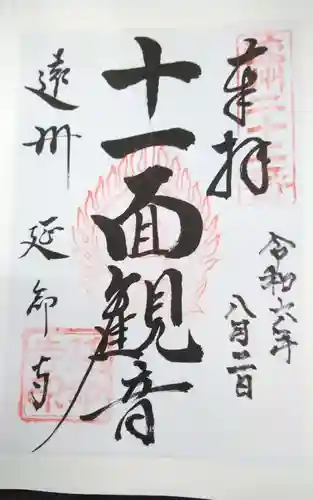 奉拝
令和六年
八月二日
十一面観音
遠州
延命寺